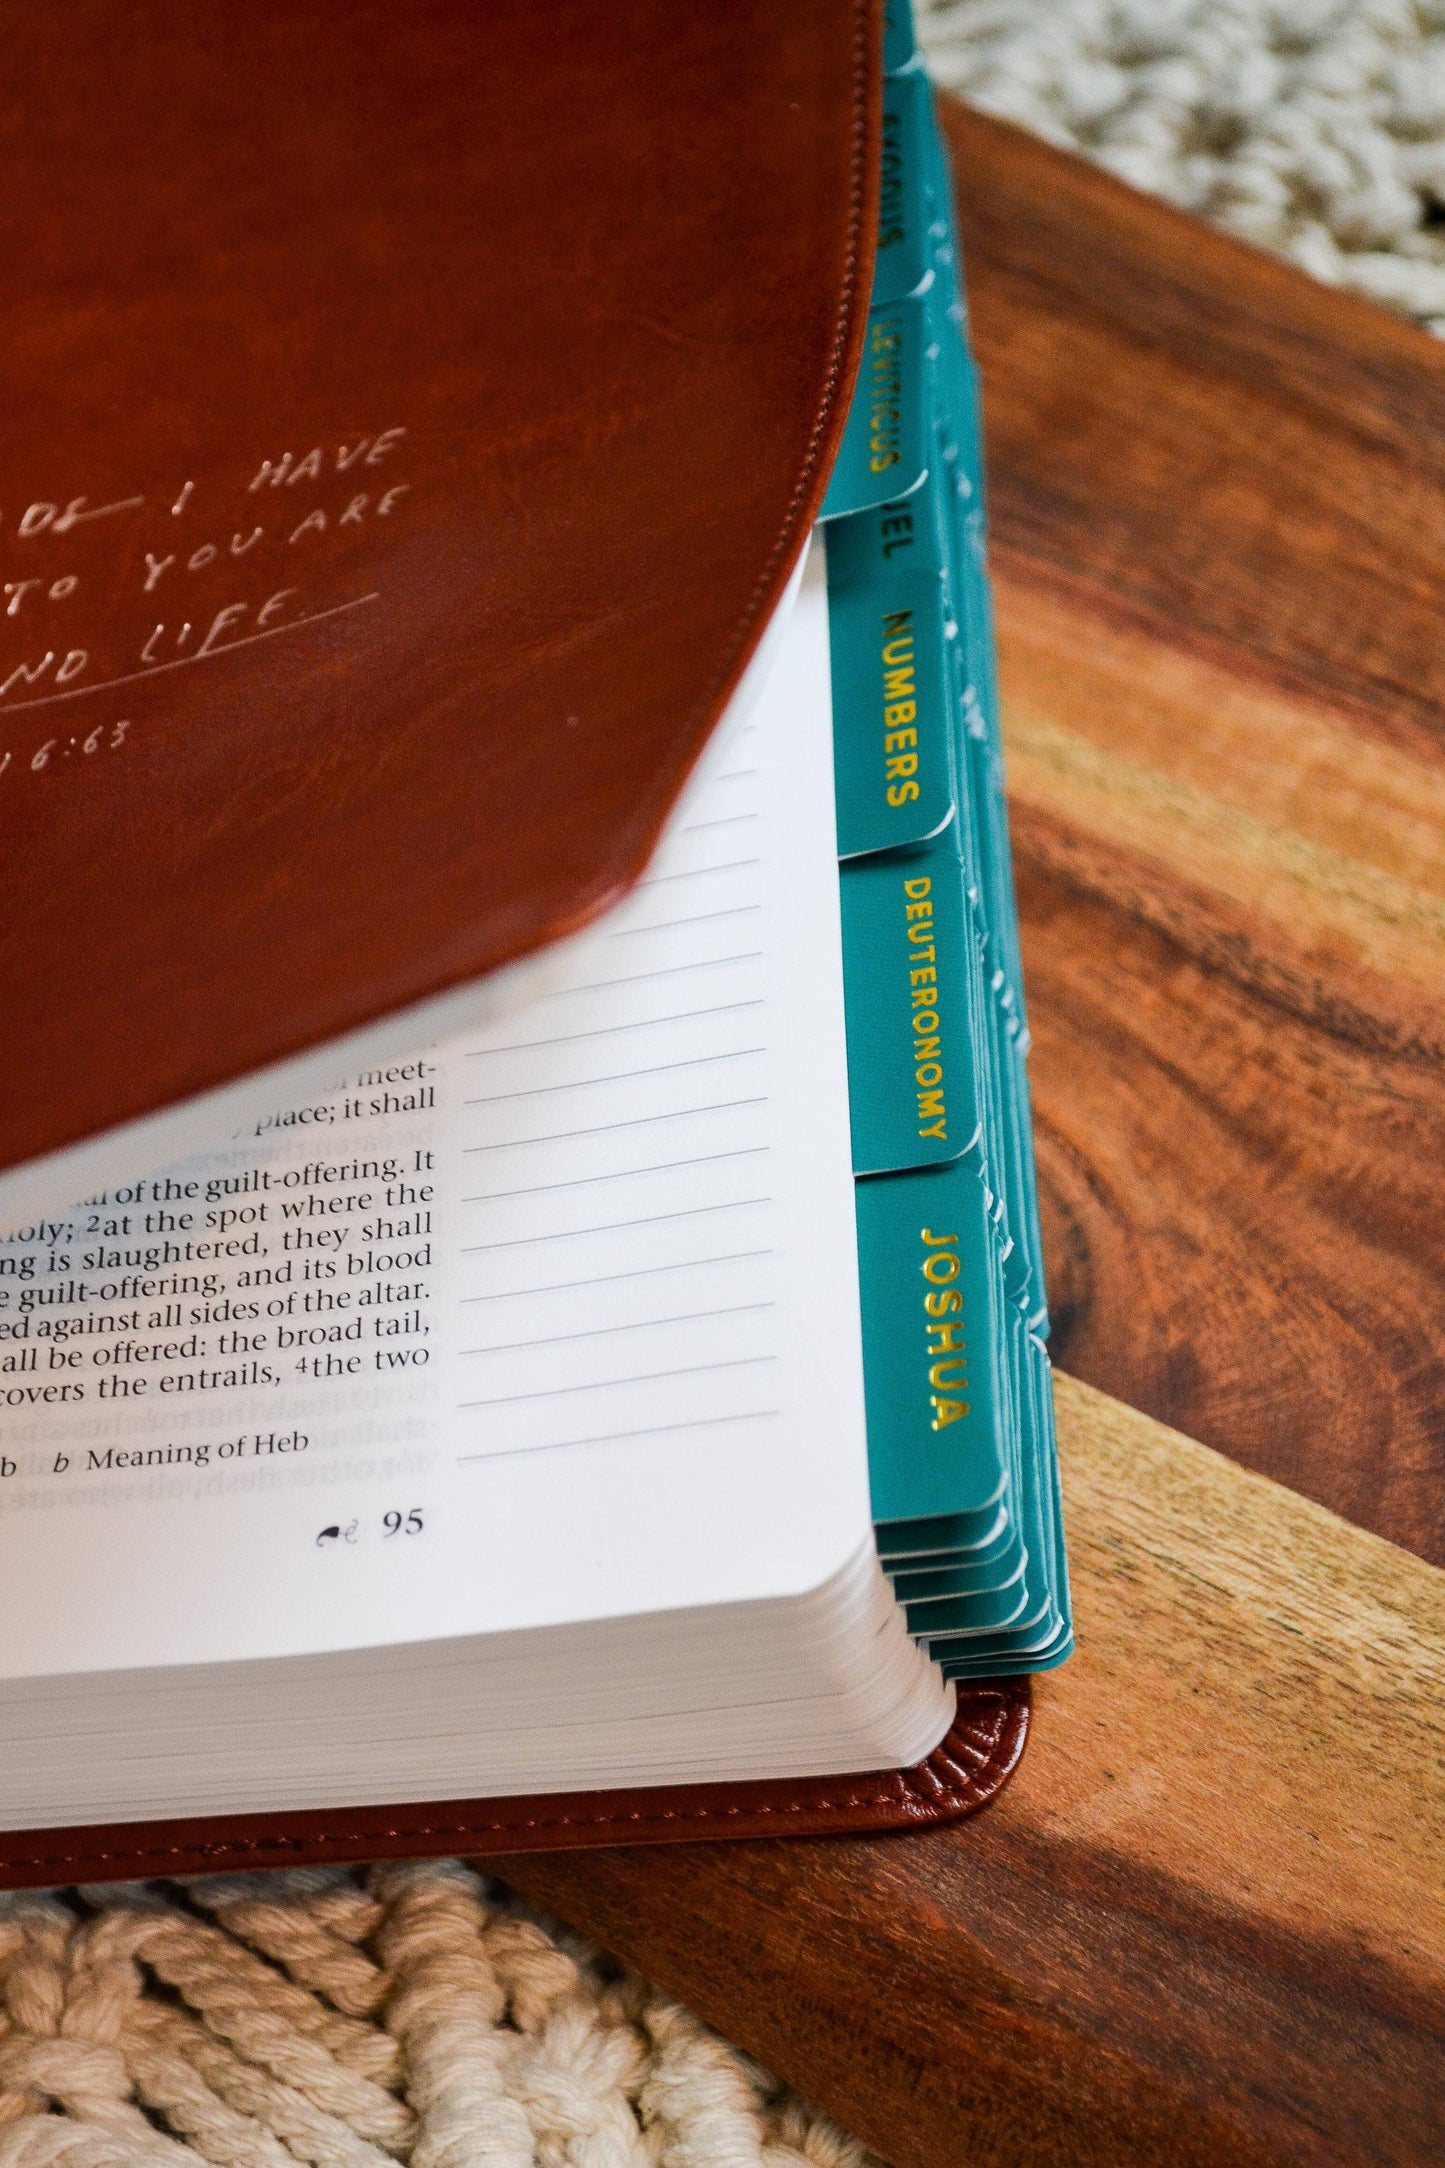 I HAVE
TO YOU ARE
LIFE
6:63
EXODUS
LEVITICUS
NUMBERS
DEUTERONOMY
JOSHUA
place; it shall
of the guilt-offering. It
2at the spot where the
is slaughtered, they shall
guilt-offering, and its blood
against all sides of the altar.
be offered: the broad tail,
covers the entrails, 4the two
b b Meaning of Heb
95